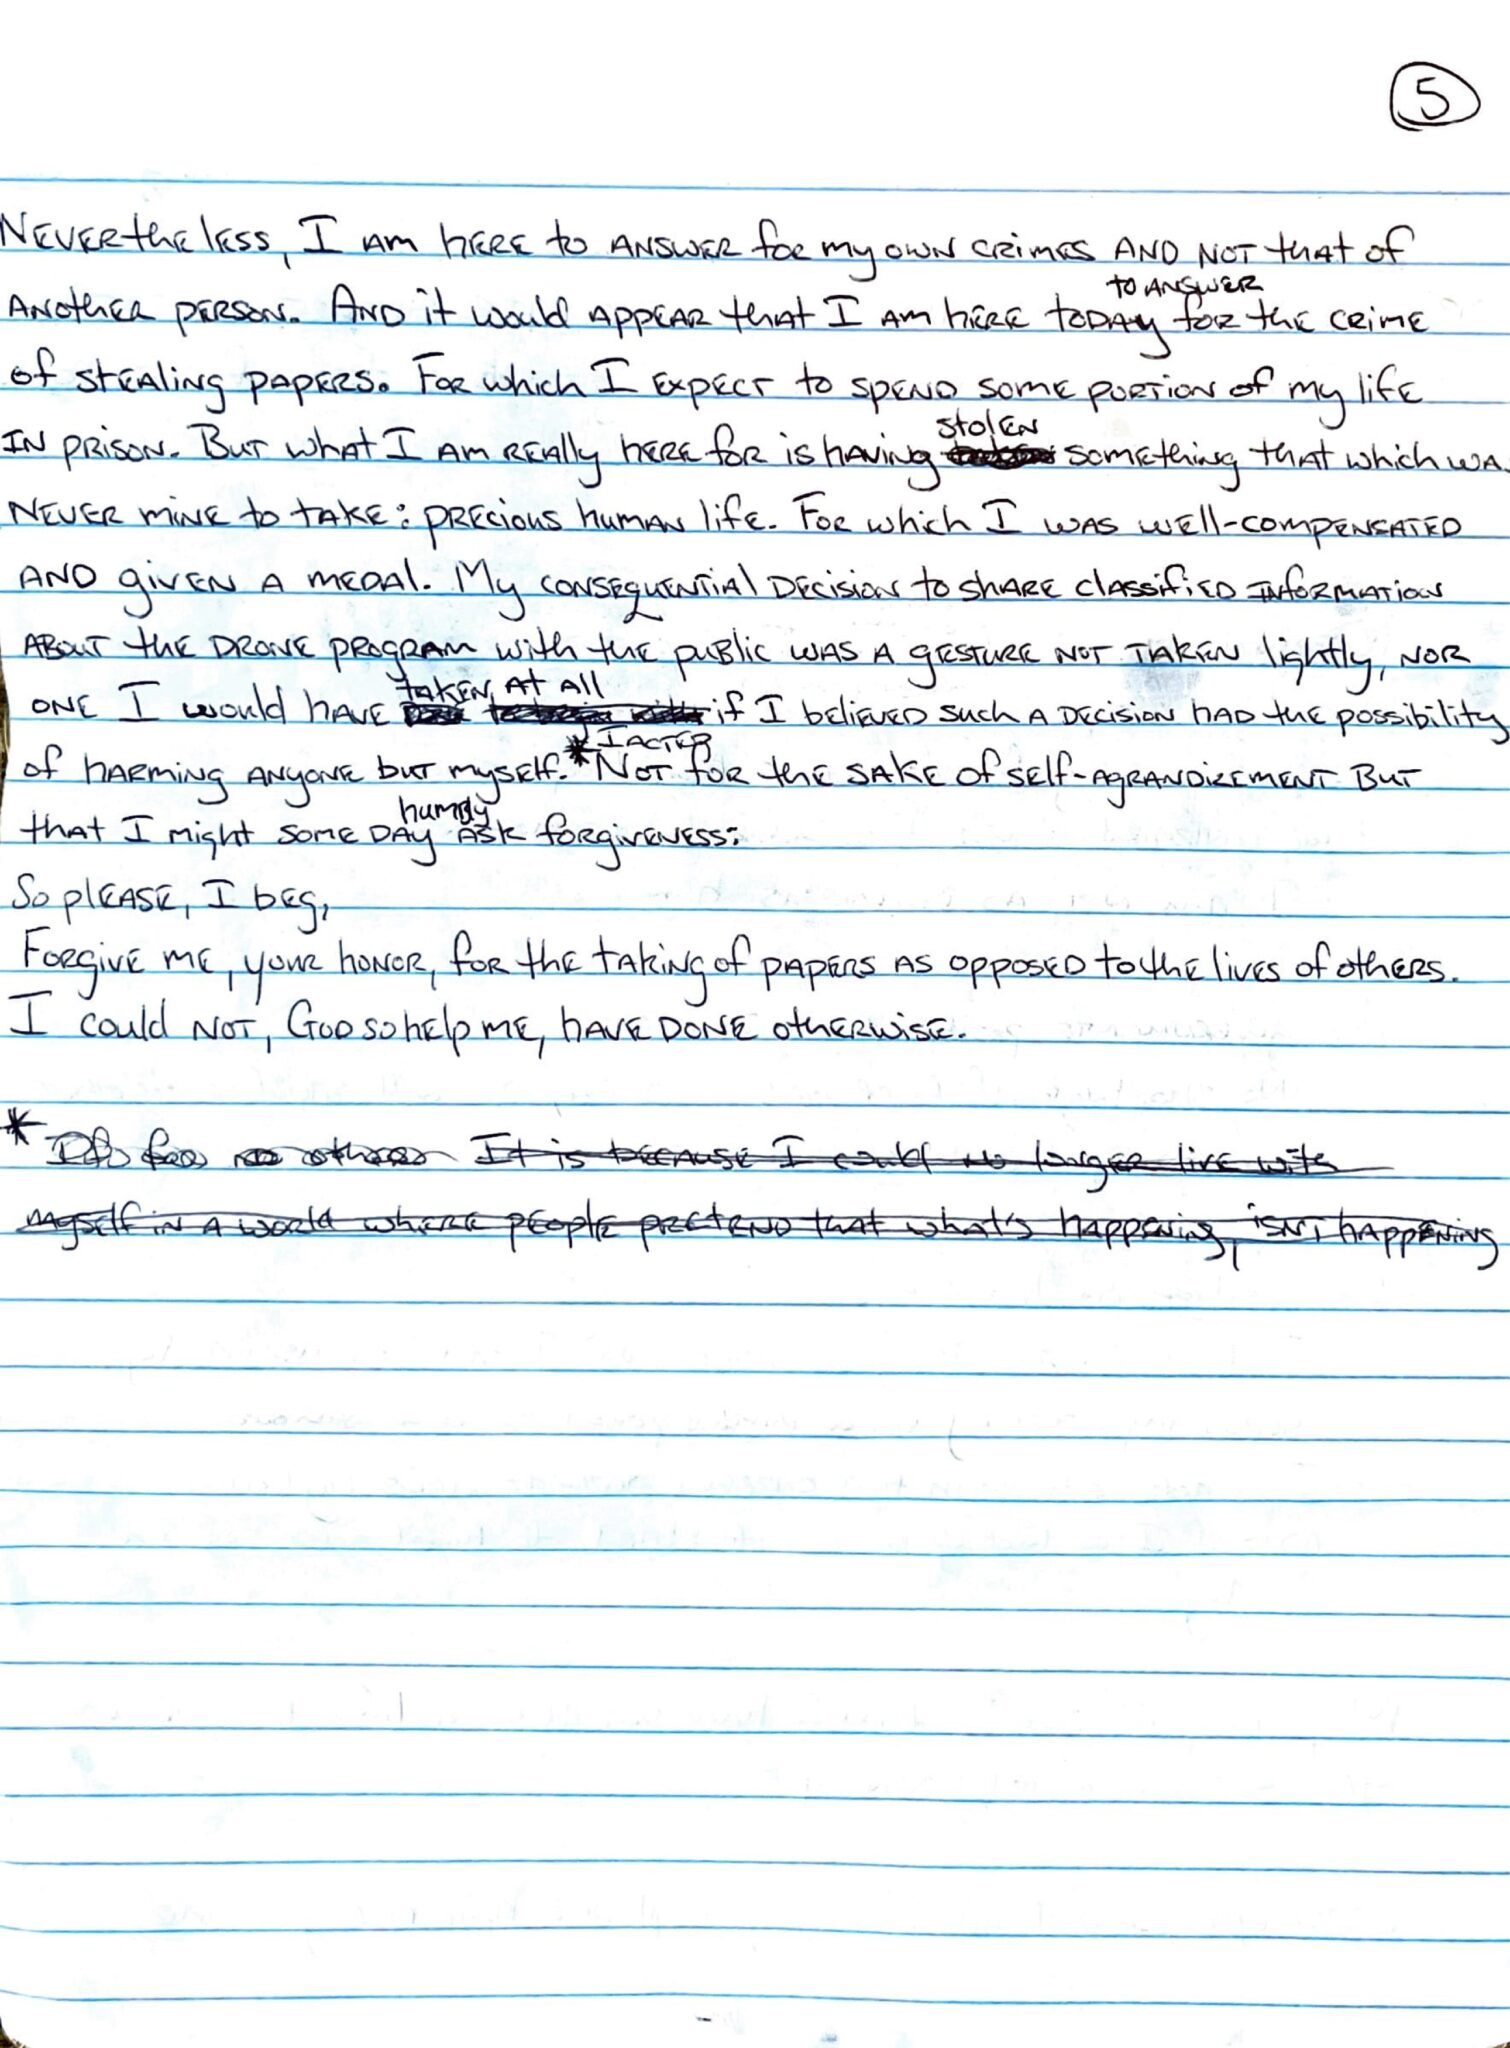 5
Nevertheless, I am here to answer for my own crimes and not that of
another person. And it would appear that I am here today to answer for the crime
of stealing papers. For which I expect to spend some portion of my life
in prison. But what I am really here for is having stolen something that which wa
never mine to take: precious human life. For which I was well-compensated
and given a medal. My consequential decision to share classified information
about the drone program with the public was a gesture not taken lightly, nor
one I would have taken at all if I believed such a decision had the possibility
of harming anyone but myself. * I acted Not for the sake of self-agrandizement but
that I might some day humbly ask forgiveness:
So please, I beg,
Forgive me, your honor, for the taking of papers as opposed to the lives of others.
I could not, God so help me, have done otherwise.
* It is because I could no longer live with
myself in a world where people pretend that what's happening, isn't happening